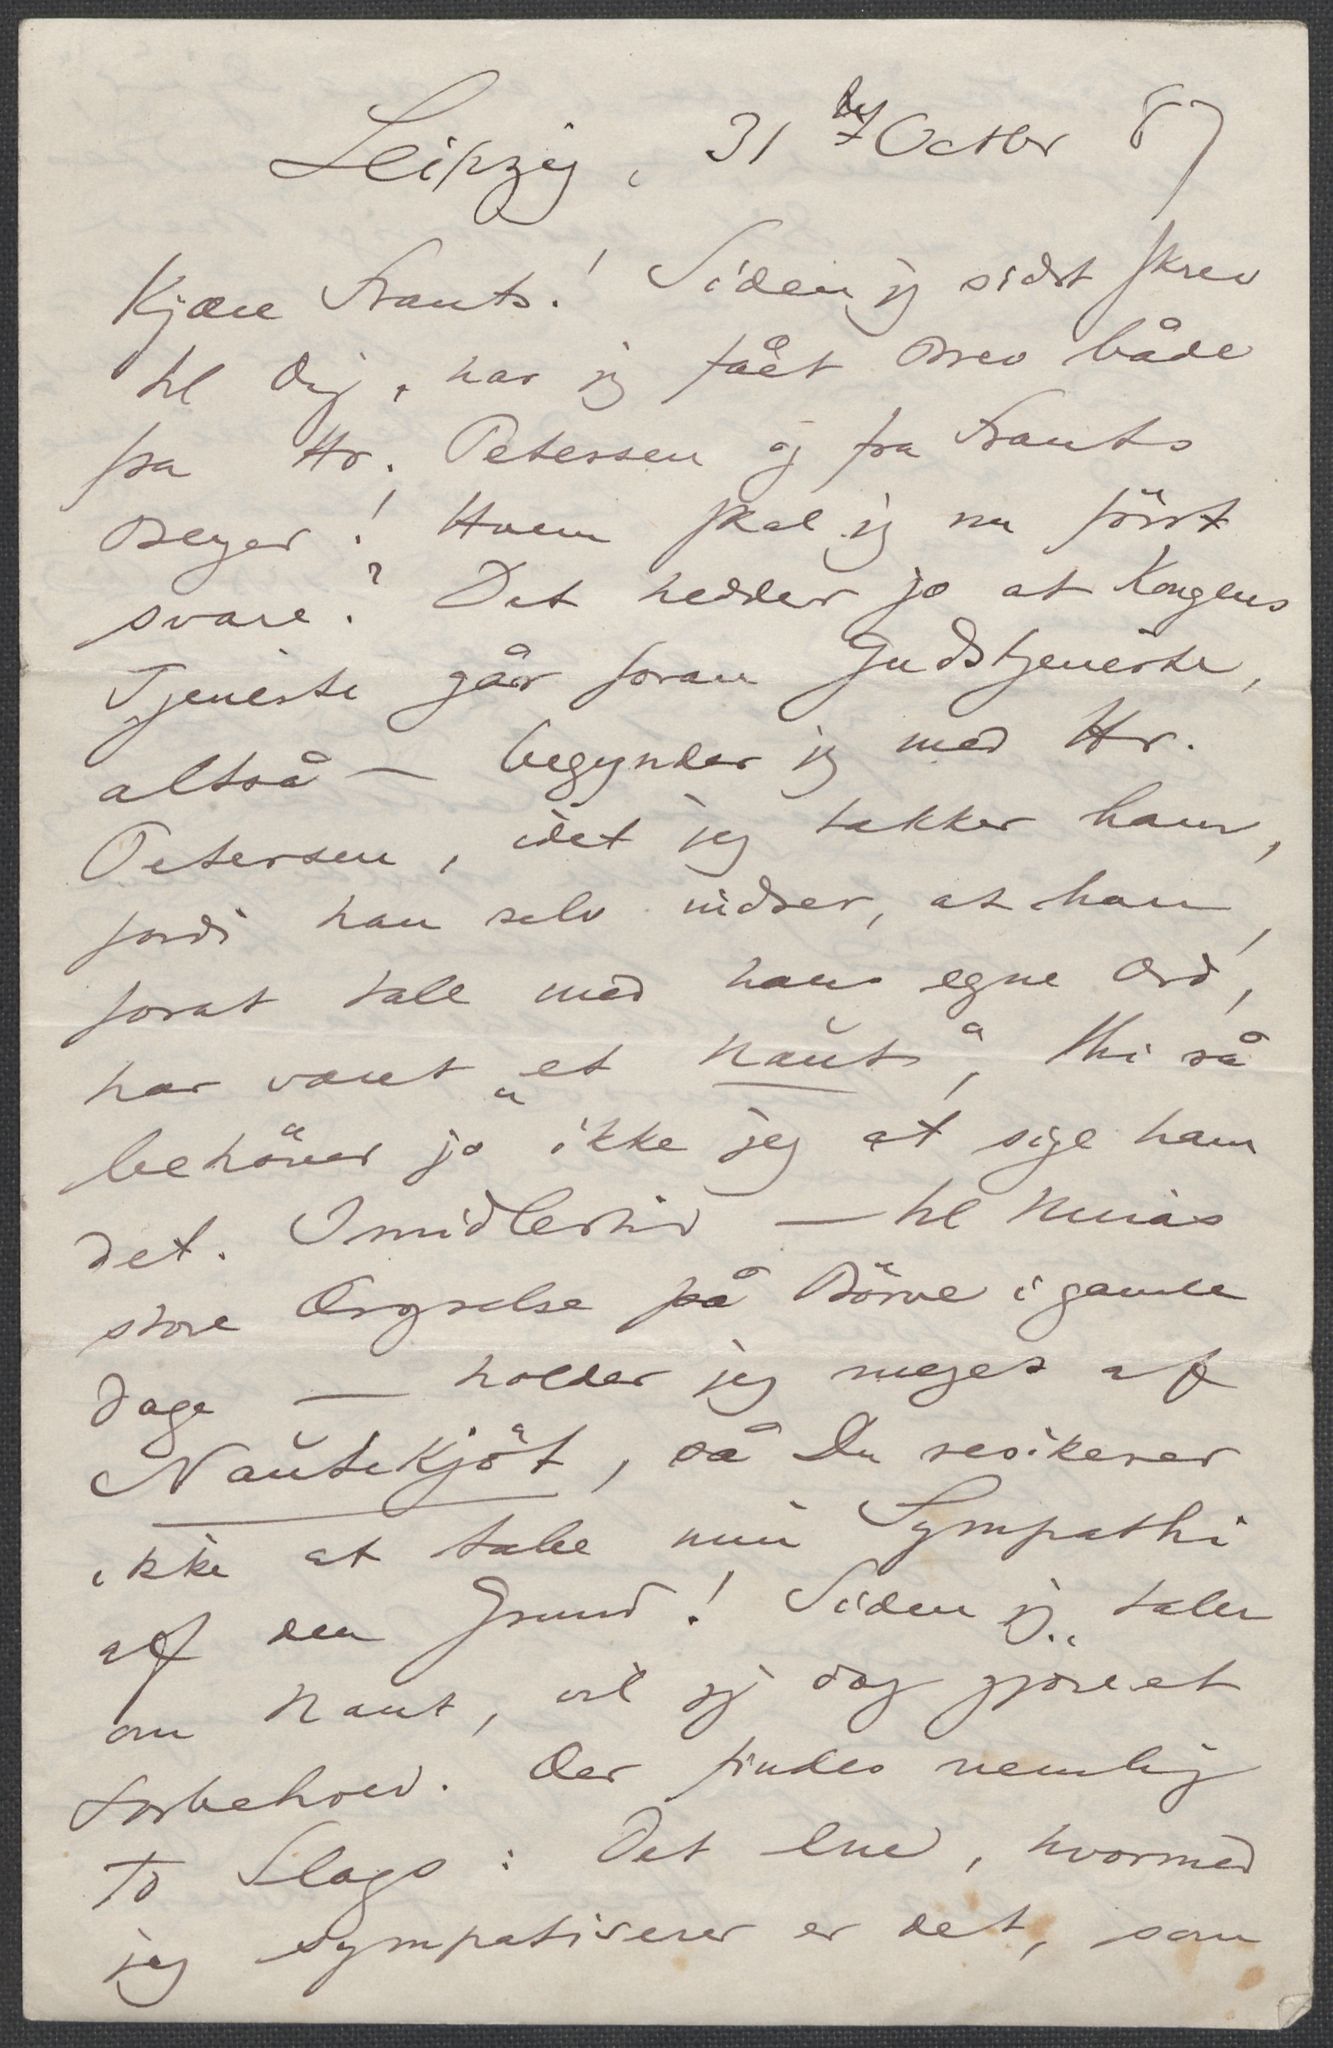 Leipzig, 31 te Octbr 87
Kjære Frants! Siden jeg sidst skrev
til Dig, har jeg fået Brev både
fra Hr. Petersen og fra Frants
Beyer! Hvem skal jeg nu först
svare? Det hedder jo at Kongens
Tjeneste går foran Gudstjeneste,
altså — begynder jeg med Hr.
Petersen, idet jeg takker ham,
fordi han selv indser, at han,
forat tale med hans egne Ord,
har været „et naŭt“, thi så
behöver jo ikke jeg at sige ham
det. Imidlertid — til Ninas
store Ærgrelse på Börve i gamle
Dage — holder jeg meget af
Naŭtekjöt, så Du resikerer
ikke at tabe min Sympathi
af den Grund! Siden jeg taler
om Naut, vil jeg dog gjöre et
Forbehold. Der findes nemlig
to Slags: Det Ene, hvormed
jeg sympatiserer er det, som